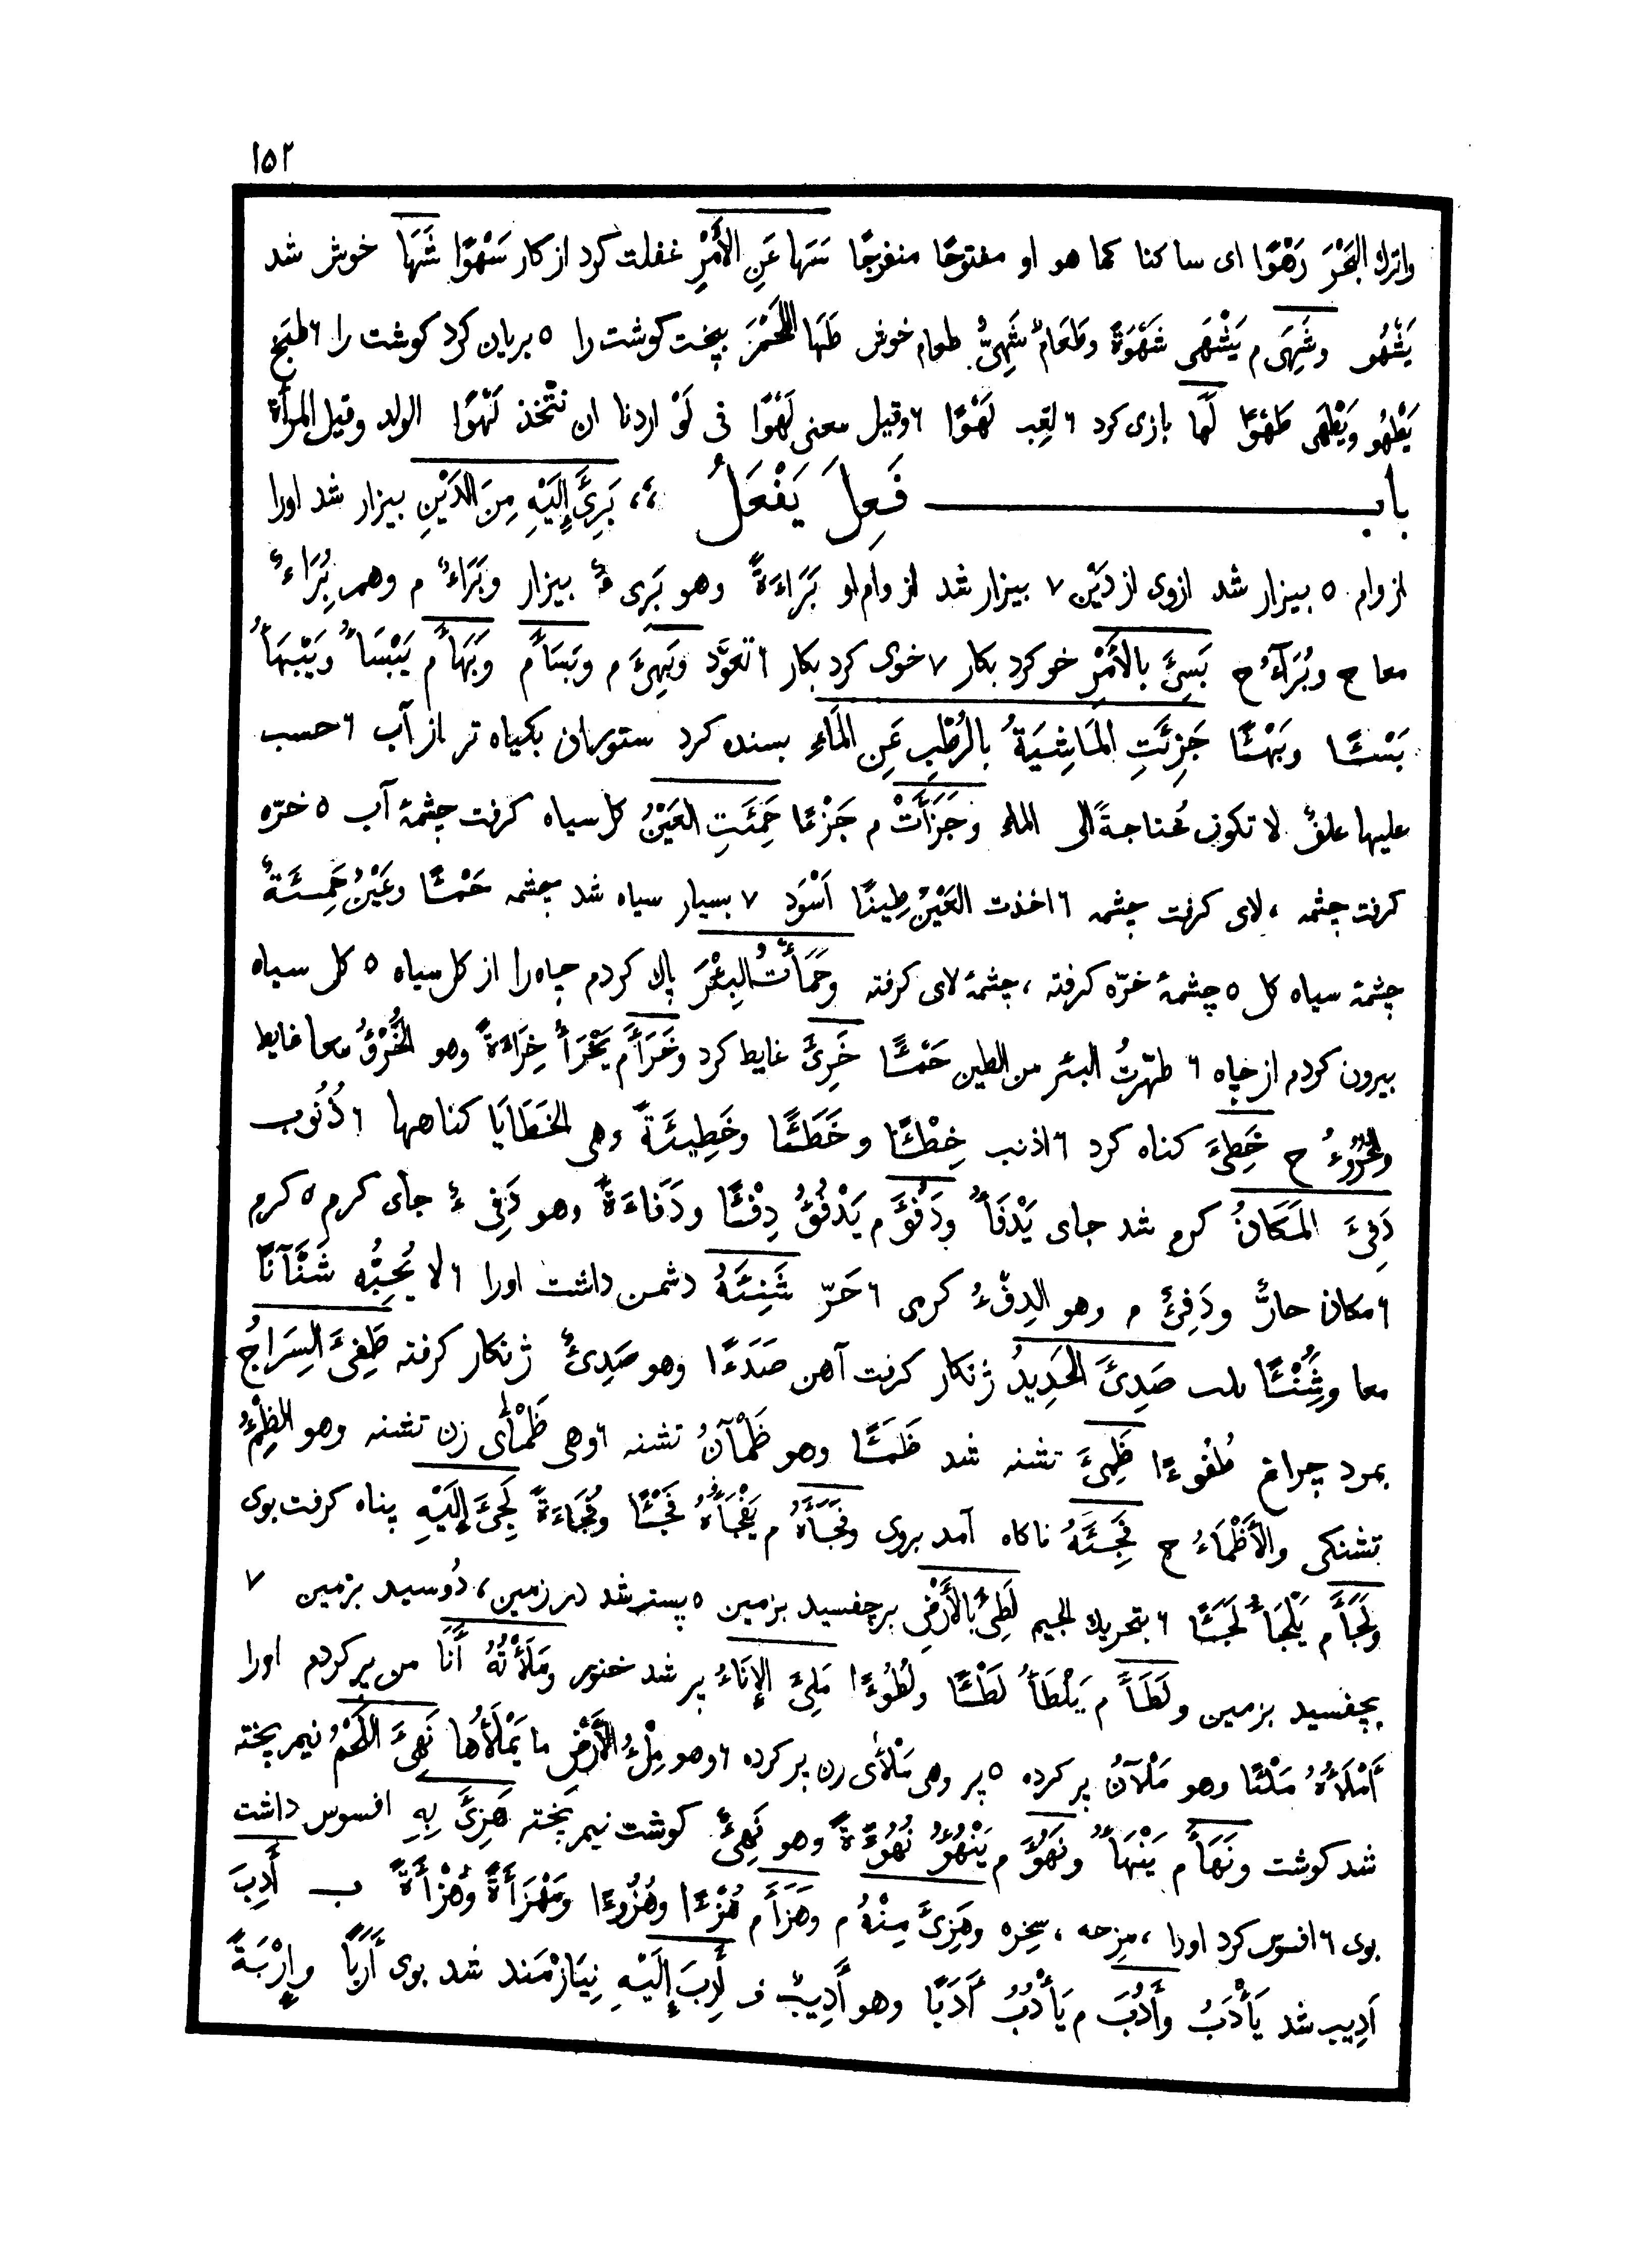 ١٥٢
واترك البَحْرَ رَهْوًا اى ساكنا كما هو او مفتوحًا منفرجًا سَهَا عَنِ الأَمْرِ غفلت كرد از كار سَهْوًا شَهَا خوش شد
يَشْهُو وشَهِىَ م يَشْهَى شَهْوَةً وطَعَامٌ شَهِىٌّ طعام خوش طَهَا اللَّحْمَ بپخت كوشت را ٥ بريان كرد كوشت را ٦ طبخ
يَطْهُو ويَطْهَى طَهْوًا لَهَا بازى كرد ٦ لَعِب لَهْوًا ٦ وقيل معنى لَهْوًا فى لَوْ اردنا ان نتّخذ لَهْوًا الولد وقيل المرأة
باب فَعِلَ يَفْعَلُ ،، بَرِئَ إِلَيْهِ مِنَ الدَّيْنِ بيزار شد اورا
از وام ٥ بيزار شد ازوى از دَيْن ٧ بيزار شد از وام او بَرَاءَةً وهو بَرِىءٌ بيزار وبَرَاءٌ م وهم بِرَاءٌ
معا ح وبُرَآءُ ح بَسِئَ بالأَمْرِ خو كرد بكار ٧ خوى كرد بكار ٦ تعوَّد وبَهِئَ م وبَسَأَ م وبَهَأَ م يَبْسَأُ ويَبْهَأُ
بَسْئًا وبَهْئًا جَزِئَتِ المَاشِيَةُ بالرُطْبِ عَنِ المَاءِ بسنده كرد ستوران بكياه تر از آب ٦ حسب
عليها علفٌ لا تكون محتاجةً الى الماء وجَزَأَتْ م جَزْءًا حَمِئَتِ العَيْنُ كل سياه كرفت چشمهٔ آب ٥ خرّه
كرفت چشمه ، لاى كرفت چشمه ٦ اخذت العَيْنُ طِينًا اَسْوَد ٧ بسيار سياه شد چشمه حَمْئًا وعَيْنٌ حَمِئَةٌ
چشمهٔ سياه كل ٥ چشمهٔ خرّه كرفته ، چشمهٔ لاى كرفته وحَمَأْتُ البِئْرَ پاك كردم چاه را از كل سياه ٥ كل سياه
بيرون كردم از چاه ٦ طهّرتُ البئر من الطين حَمْئًا خَرِئَ غايط كرد وخَرَأَ م يَخْرَأُ خِرَاءَةً وهو الخُرْءُ معا غايط
والخُرُوءُ ح خَطِىءَ كناه كرد ٦ اذنب خِطْئًا وخَطَئًا وخَطِيئَةً وهى الخَطَايَا كناهها ٦ ذُنُوب
دَفِىءَ المَكَانُ كرم شد جاى يَدْفَأُ ودَفُؤَ م يَدْفُؤُ دِفْئًا ودَفَاءَةً وهو دَفِىءٌ جاى كرم ٥ كرم
٦ مكان حارٌّ ودَفِئٌ م وهو الدِفْءُ كرمى ٦ حَرّ شَنِئَهُ دشمن داشت اورا ٦ لا يُحِبُّه شَنْآنًا
معا وشُنْئًا صَدِئَ الحَدِيدُ ژنكار كرفت آهن صَدَءًا وهو صَدِئٌ ژنكار كرفته طَفِئَ السِرَاجُ
بمرد چراغ طُفُوءًا ظَمِئَ تشنه شد ظَمَئًا وهو ظَمْآنُ تشنه ٦ وهى ظَمْأَى زن تشنه وهو الظِمْءُ
تشنكى والأَظْمَاءُ ح فَجِئَهُ ناكاه آمد بروى وفَجَأَهُ م يَفْجَأُهُ فَجْئًا وفُجَاءَةً لَجِئَ إِلَيْهِ پناه كرفت بوى
ولَجَأَ م يَلْجَأُ لَجَئًا ٦ بتحريك الجيم لَطِئَ بالأَرْضِ برچفسيد بزمين ٥ پستر شد در زمين ، دُوسيد بزمين ٧
بچفسيد بزمين ولَطَأَ م يَلْطَأُ لَطْئًا ولُطُوءًا مَلِئَ الإِنَاءُ پر شد خنور ومَلَأْتُهُ أَنَا من پر كردم اورا
أَمْلَأُهُ مَلْئًا وهو مَلْآنُ پر كرده ٥ پر وهى مَلْأَى زن پر كرده ٦ وهو مِلْءُ الأَرْضِ ما يَمْلَأُها نَهِئَ اللَّحْمُ نيم پخته
شد كوشت ونَهَأَ م يَنْهَأُ ونَهُؤَ م يَنْهُؤُ نُهُوْءَةً وهو نَهِئٌ كوشت نيم پخته هَزِئَ بِهِ افسوس داشت
بوى ٦ افسوس كرد اورا ، مزحه ، سخره وهَزِئَ مِنْهُ م وهَزَأَ م هُزْءًا وهُزُوءًا ومَهْزَأَةً وهُزْأَةً ب أَدِبَ
اَدِيب شد يَأْدَبُ وأَدُبَ م يَأْدُبُ أَدَبًا وهو أَدِيبٌ ف أَرِبَ إِلَيْهِ نِيَازْمَند شد بوى أَرَبًا وإِرْبَةً